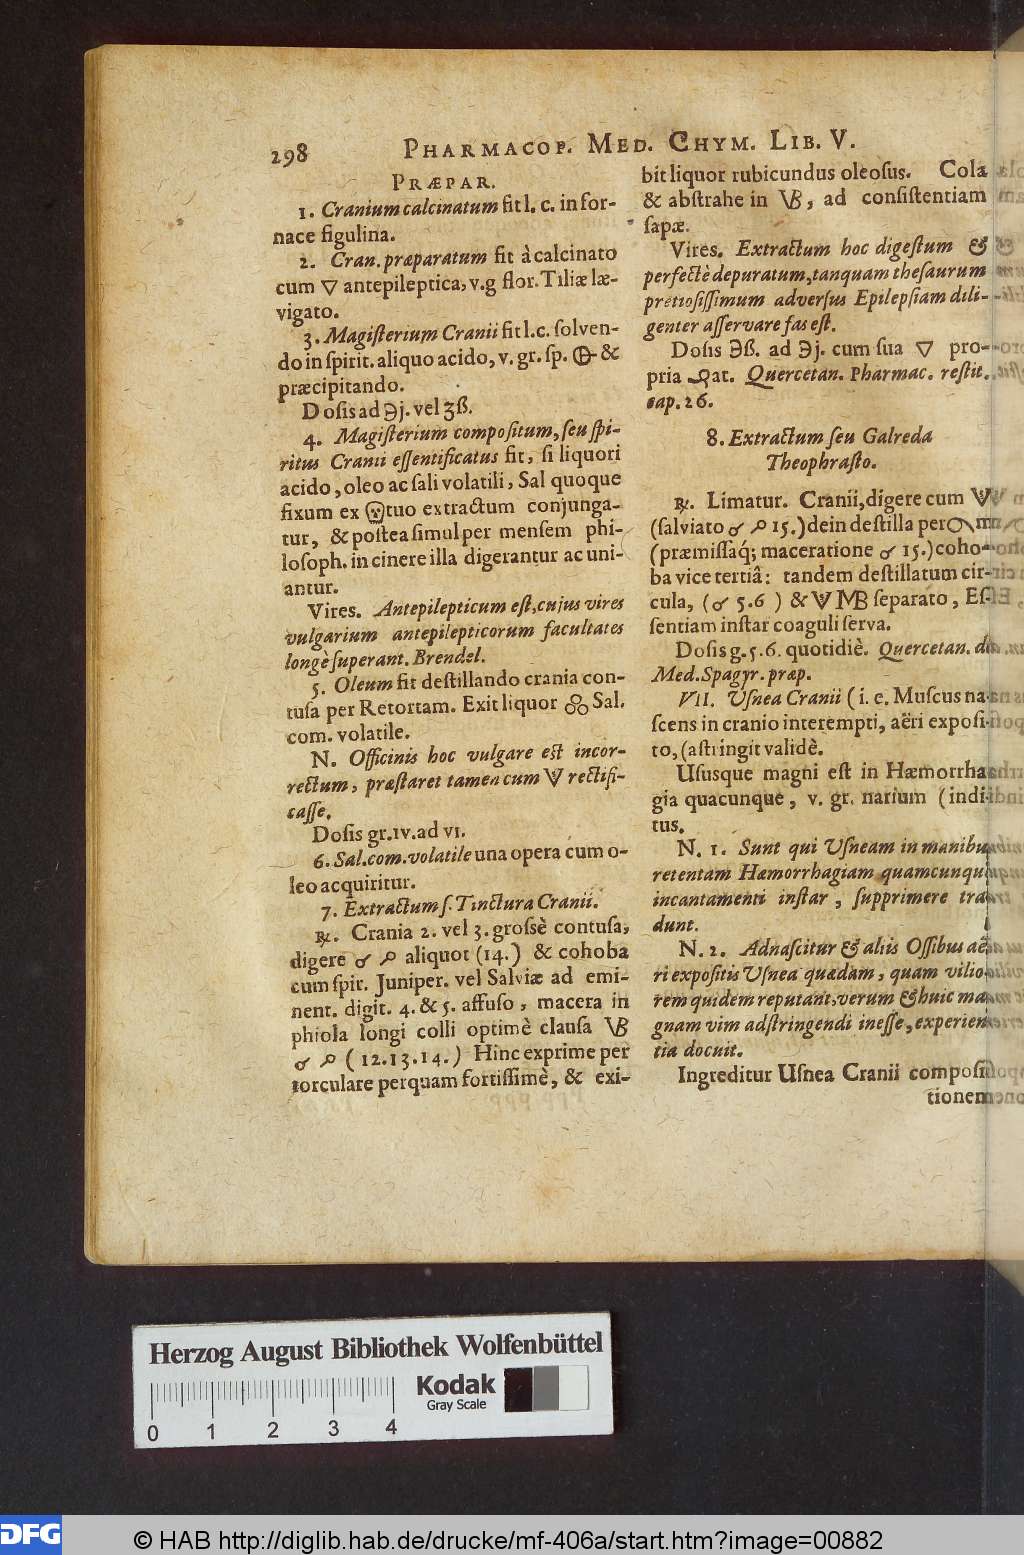 298 PHARMACOP. MED. CHYM. LIB. V.
PRÆPAR.
1. Cranium calcinatum fit l. c. in for-
nace figulina.
2. Cran. præparatum fit à calcinato
cum 🜄 antepileptica, v.g flor. Tiliæ læ-
vigato.
3. Magiſterium Cranii fit l.c. ſolven-
do in ſpirit. aliquo acido, v. gr. ſp. 🜖 &
præcipitando.
Doſis ad ℈j. vel ʒß.
4. Magiſterium compoſitum, ſeu ſpi-
ritus Cranii eſſentificatus fit, ſi liquori
acido, oleo ac ſali volatili, Sal quoque
fixum ex ☠tuo extractum conjunga-
tur, & poſtea ſimul per menſem phi-
loſoph. in cinere illa digerantur ac uni-
antur.
Vires. Antepilepticum eſt, cujus vires
vulgarium antepilepticorum facultates
longè ſuperant. Brendel.
5. Oleum fit deſtillando crania con-
tuſa per Retortam. Exit liquor ஃ Sal.
com. volatile.
N. Officinis hoc vulgare eſt incor-
rectum, præſtaret tamen cum 🜄 rectifi-
caſſe.
Doſis gr. IV. ad VI.
6. Sal. com. volatile una opera cum o-
leo acquiritur.
7. Extractum ſ. Tinctura Cranii.
℞. Crania 2. vel 3. groſsè contuſa,
digere ♂ ☌ aliquot (14.) & cohoba
cum ſpir. Juniper. vel Salviæ ad emi-
nent. digit. 4. & 5. affuſo, macera in
phiola longi colli optimè clauſa VB
♂ ☌ (12.13.14.) Hinc exprime per
torculare perquam fortiſſimè, & exi-
bit liquor rubicundus oleoſus. Cola
& abſtrahe in VB, ad conſiſtentiam
ſapæ.
Vires. Extractum hoc digeſtum &
perfectè depuratum, tanquam theſaurum
pretioſiſſimum adverſus Epilepſiam dili-
genter aſſervare fas eſt.
Doſis ℈ß. ad ℈j. cum ſua 🜄 pro-
pria at. Quercetan. Pharmac. reſtit.
cap. 26.
8. Extractum ſeu Galreda
Theophraſto.
℞. Limatur. Cranii, digere cum V
(ſalviato ♂ ☌ 15.) dein deſtilla per m
(præmiſſaq́; maceratione ♂ 15.) coho-
ba vice tertiâ: tandem deſtillatum cir-
cula, (♂ 5.6) & V MB ſeparato, Eſ-
ſentiam inſtar coaguli ſerva.
Doſis g. 5. 6. quotidiè. Quercetan. di
Med. Spagyr. præp.
VII. Uſnea Cranii (i. e. Muſcus na-
ſcens in cranio interempti, aëri expoſi-
to, (aſtringit validè.
Uſusque magni eſt in Hæmorrha-
gia quacunque, v. gr. narium (indi-
tus.
N. 1. Sunt qui Uſneam in manibu
retentam Hæmorrhagiam quamcunqu
incantamenti inſtar, ſupprimere tra
dunt.
N. 2. Adnaſcitur & aliis Oſſibus aë
ri expoſitis Uſnea quædam, quam vilio
rem quidem reputant, verum & huic ma
gnam vim adſtringendi ineſſe, experien
tia docuit.
Ingreditur Uſnea Cranii compoſi
tionem
Herzog August Bibliothek Wolfenbüttel
Kodak
Gray Scale
0 1 2 3 4
DFG © HAB http://diglib.hab.de/drucke/mf-406a/start.htm?image=00882